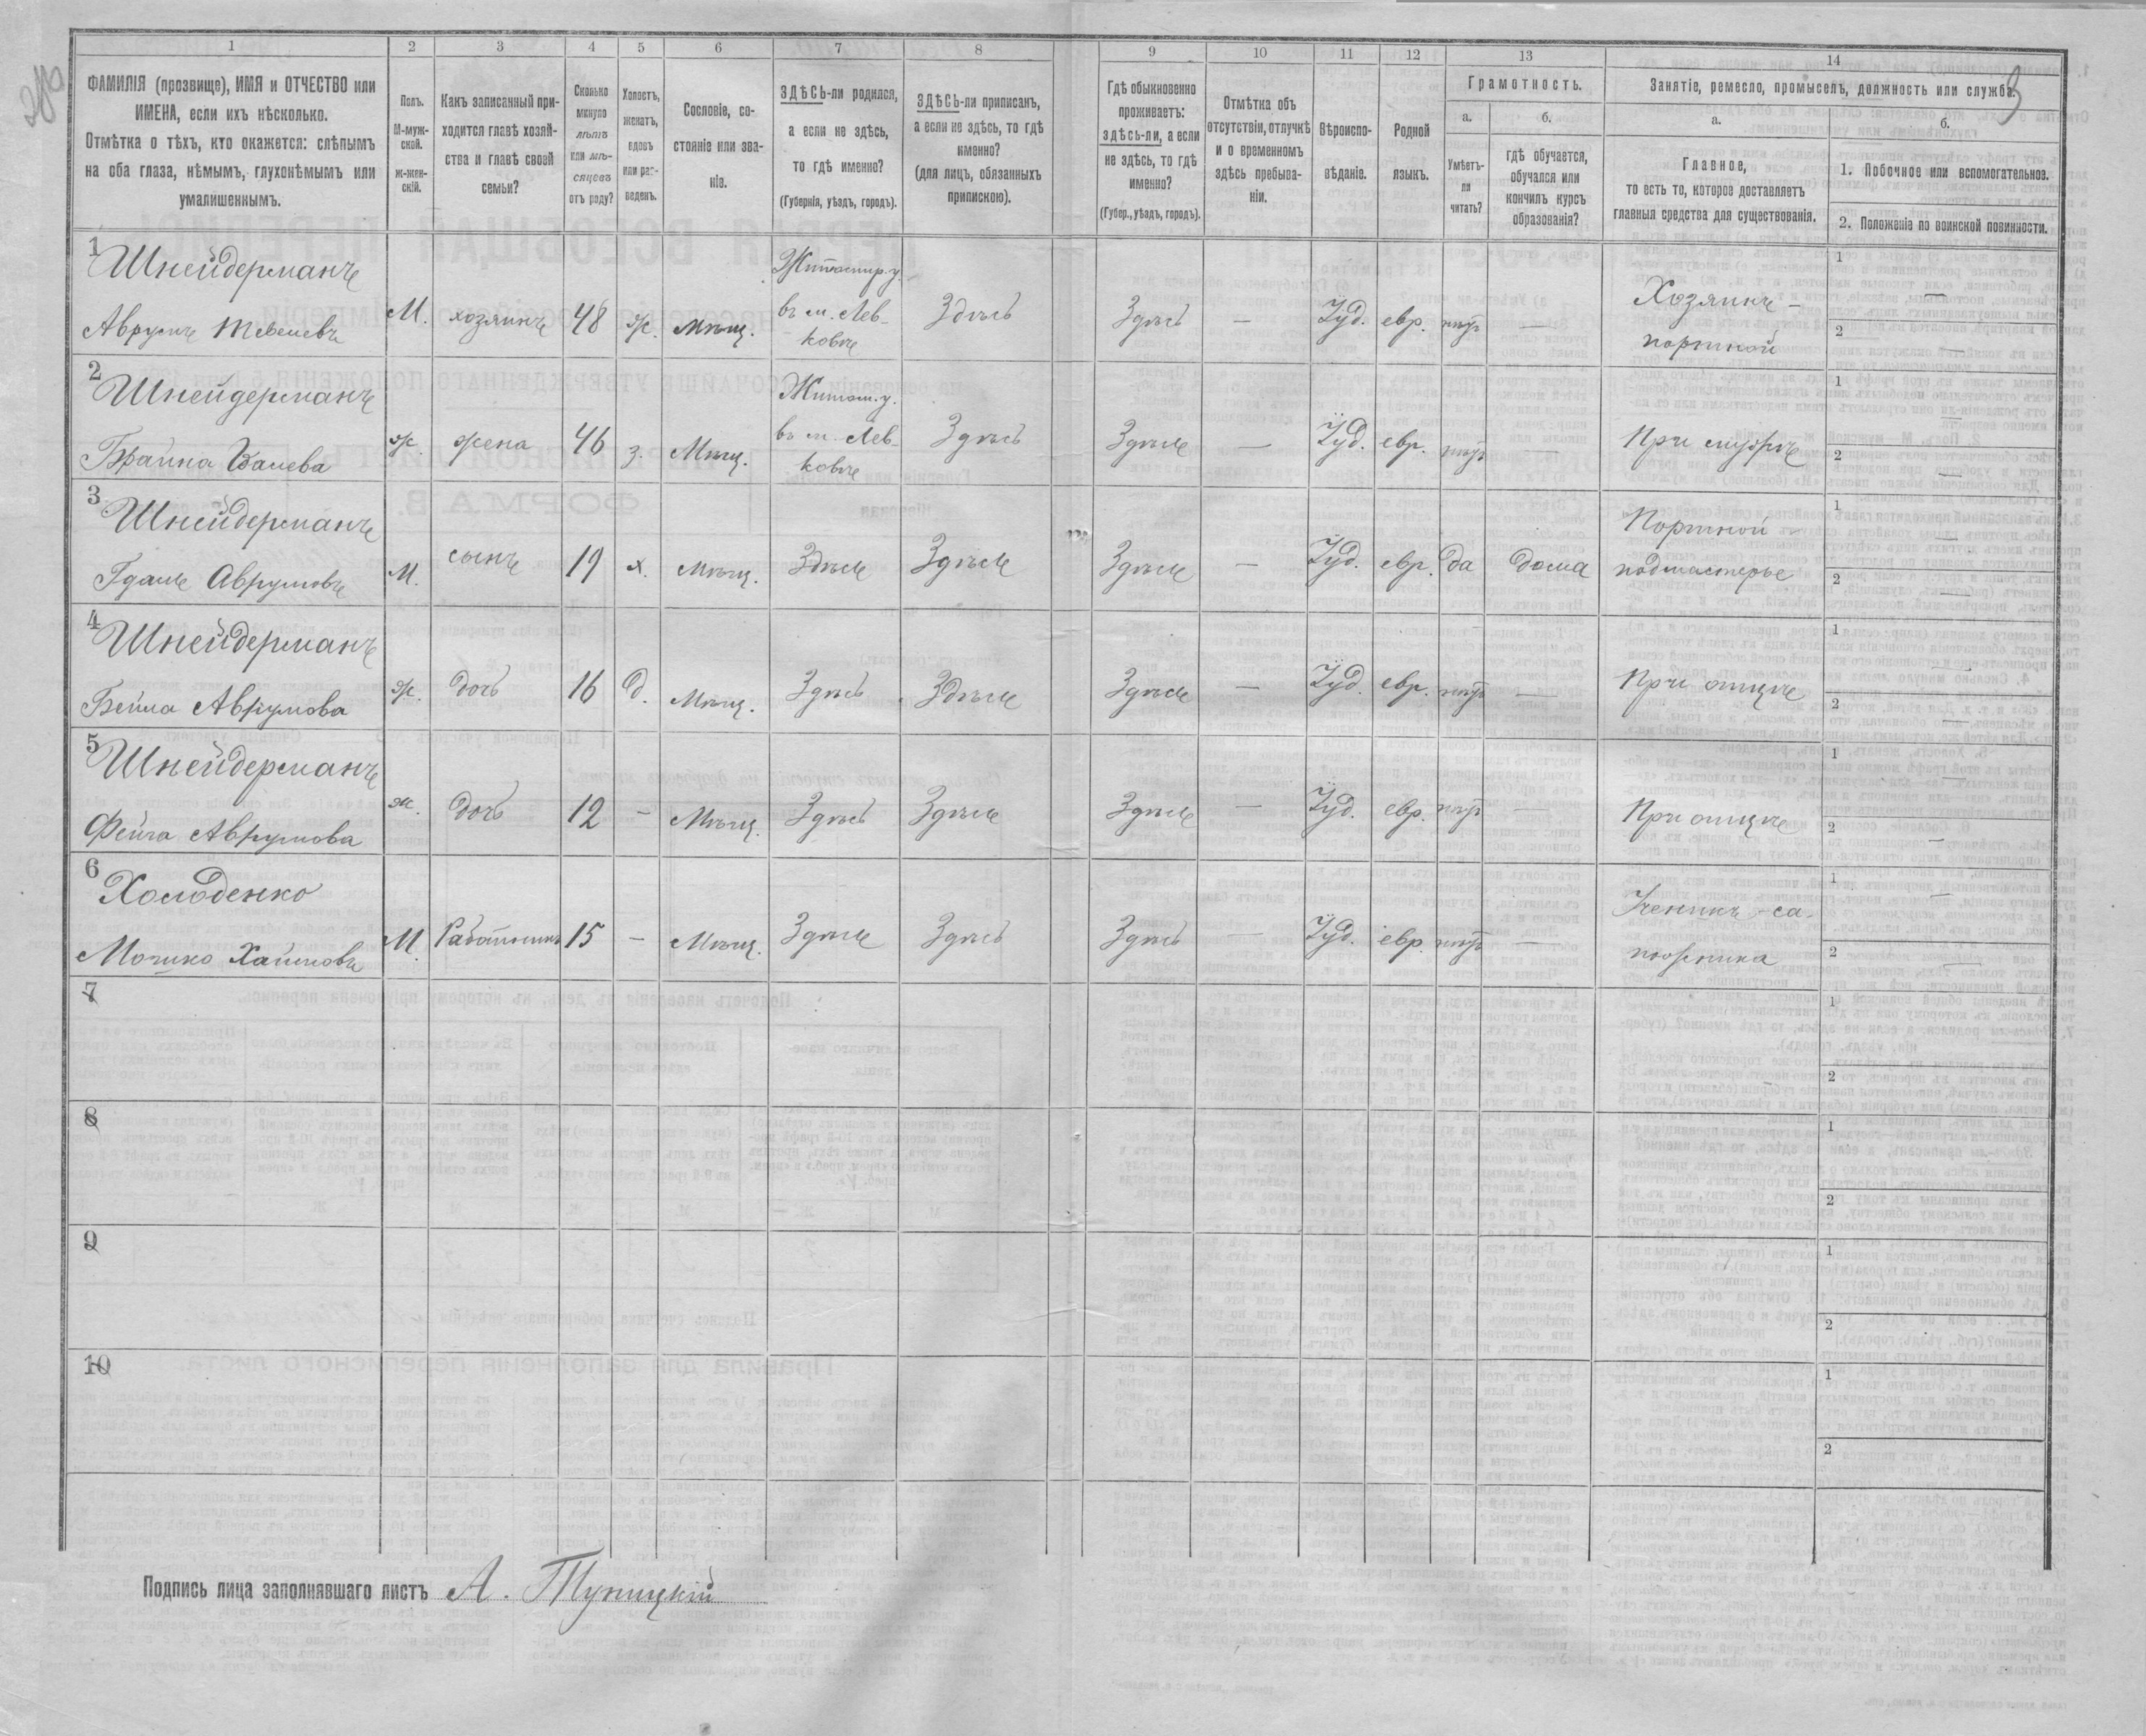 1 2 3 4 5 6 7 8 9 10 11 12 13 14
ФАМИЛІЯ (прозвище), ИМЯ и ОТЧЕСТВО или
ИМЕНА, если ихъ нѣсколько.
Отмѣтка о тѣхъ, кто окажется: слѣпымъ
на оба глаза, нѣмымъ, глухонѣмымъ или
умалишеннымъ.
Полъ.
М-муж-
ской.
Ж-жен-
скій.
Какъ записанный при-
ходится главѣ хозяй-
ства и главѣ своей
семьи?
Сколько
минуло
лѣтъ
или мѣ-
сяцевъ
отъ роду?
Холостъ,
женатъ,
вдовъ
или раз-
веденъ.
Сословіе, со-
стояніе или зва-
ніе.
ЗДѢСЬ-ли родился,
а если не здѣсь,
то гдѣ именно?
(Губернія, уѣздъ, городъ).
ЗДѢСЬ-ли приписанъ,
а если не здѣсь, то гдѣ
именно?
(для лицъ, обязанныхъ
припискою).
Гдѣ обыкновенно
проживаетъ:
здѣсь-ли, а если
не здѣсь, то гдѣ
именно?
(Губер., уѣздъ, городъ).
Отмѣтка объ
отсутствіи, отлучкѣ
и о временномъ
здѣсь пребыва-
ніи.
Вѣроиспо-
вѣданіе.
Родной
языкъ.
Грамотность.
а.
Умѣетъ-
ли
читать?
б.
гдѣ обучается,
обучался или
кончилъ курсъ
образованія?
Занятіе, ремесло, промыселъ, должность или служба.
а.
Главное,
то есть то, которое доставляетъ
главныя средства для существованія.
б.
1. Побочное или вспомогательное.
2. Положеніе по воинской повинности.
1 Шнейдерманъ Житомир. у. 1 —
Аврумъ М. хозяинъ 48 ж. Мѣщ. въ м. Лев- Здѣсь Здѣсь — Іуд. евр. нѣтъ — Хозяинъ - 2 —
ковѣ портной
2 Шнейдерманъ Житом. у. 1 —
Брайна ж. жена 46 з. Мѣщ. въ м. Лев- Здѣсь Здѣсь — Іуд. евр. нѣтъ — При мужѣ 2 —
ковѣ
3 Шнейдерманъ Портной 1 —
Аврумовъ М. сынъ 19 х. Мѣщ. Здѣсь Здѣсь Здѣсь — Іуд. евр. да дома подмастерье 2 —
4 Шнейдерманъ 1 —
Бейла Аврумова ж. дочь 16 д. Мѣщ. Здѣсь Здѣсь Здѣсь — Іуд. евр. нѣтъ — При отцѣ 2 —
5 Шнейдерманъ 1 —
Фейга Аврумова ж. дочь 12 — Мѣщ. Здѣсь Здѣсь Здѣсь — Іуд. евр. нѣтъ — При отцѣ 2 —
6 Холоденко Ученикъ са- 1 —
Мошко Хаимовъ М. Работникъ 15 — Мѣщ. Здѣсь Здѣсь Здѣсь — Іуд. евр. нѣтъ — пожника 2 —
7 1
2
8 1
2
9 1
2
10 1
2
Подпись лица заполнявшаго листъ А. Тупицкій